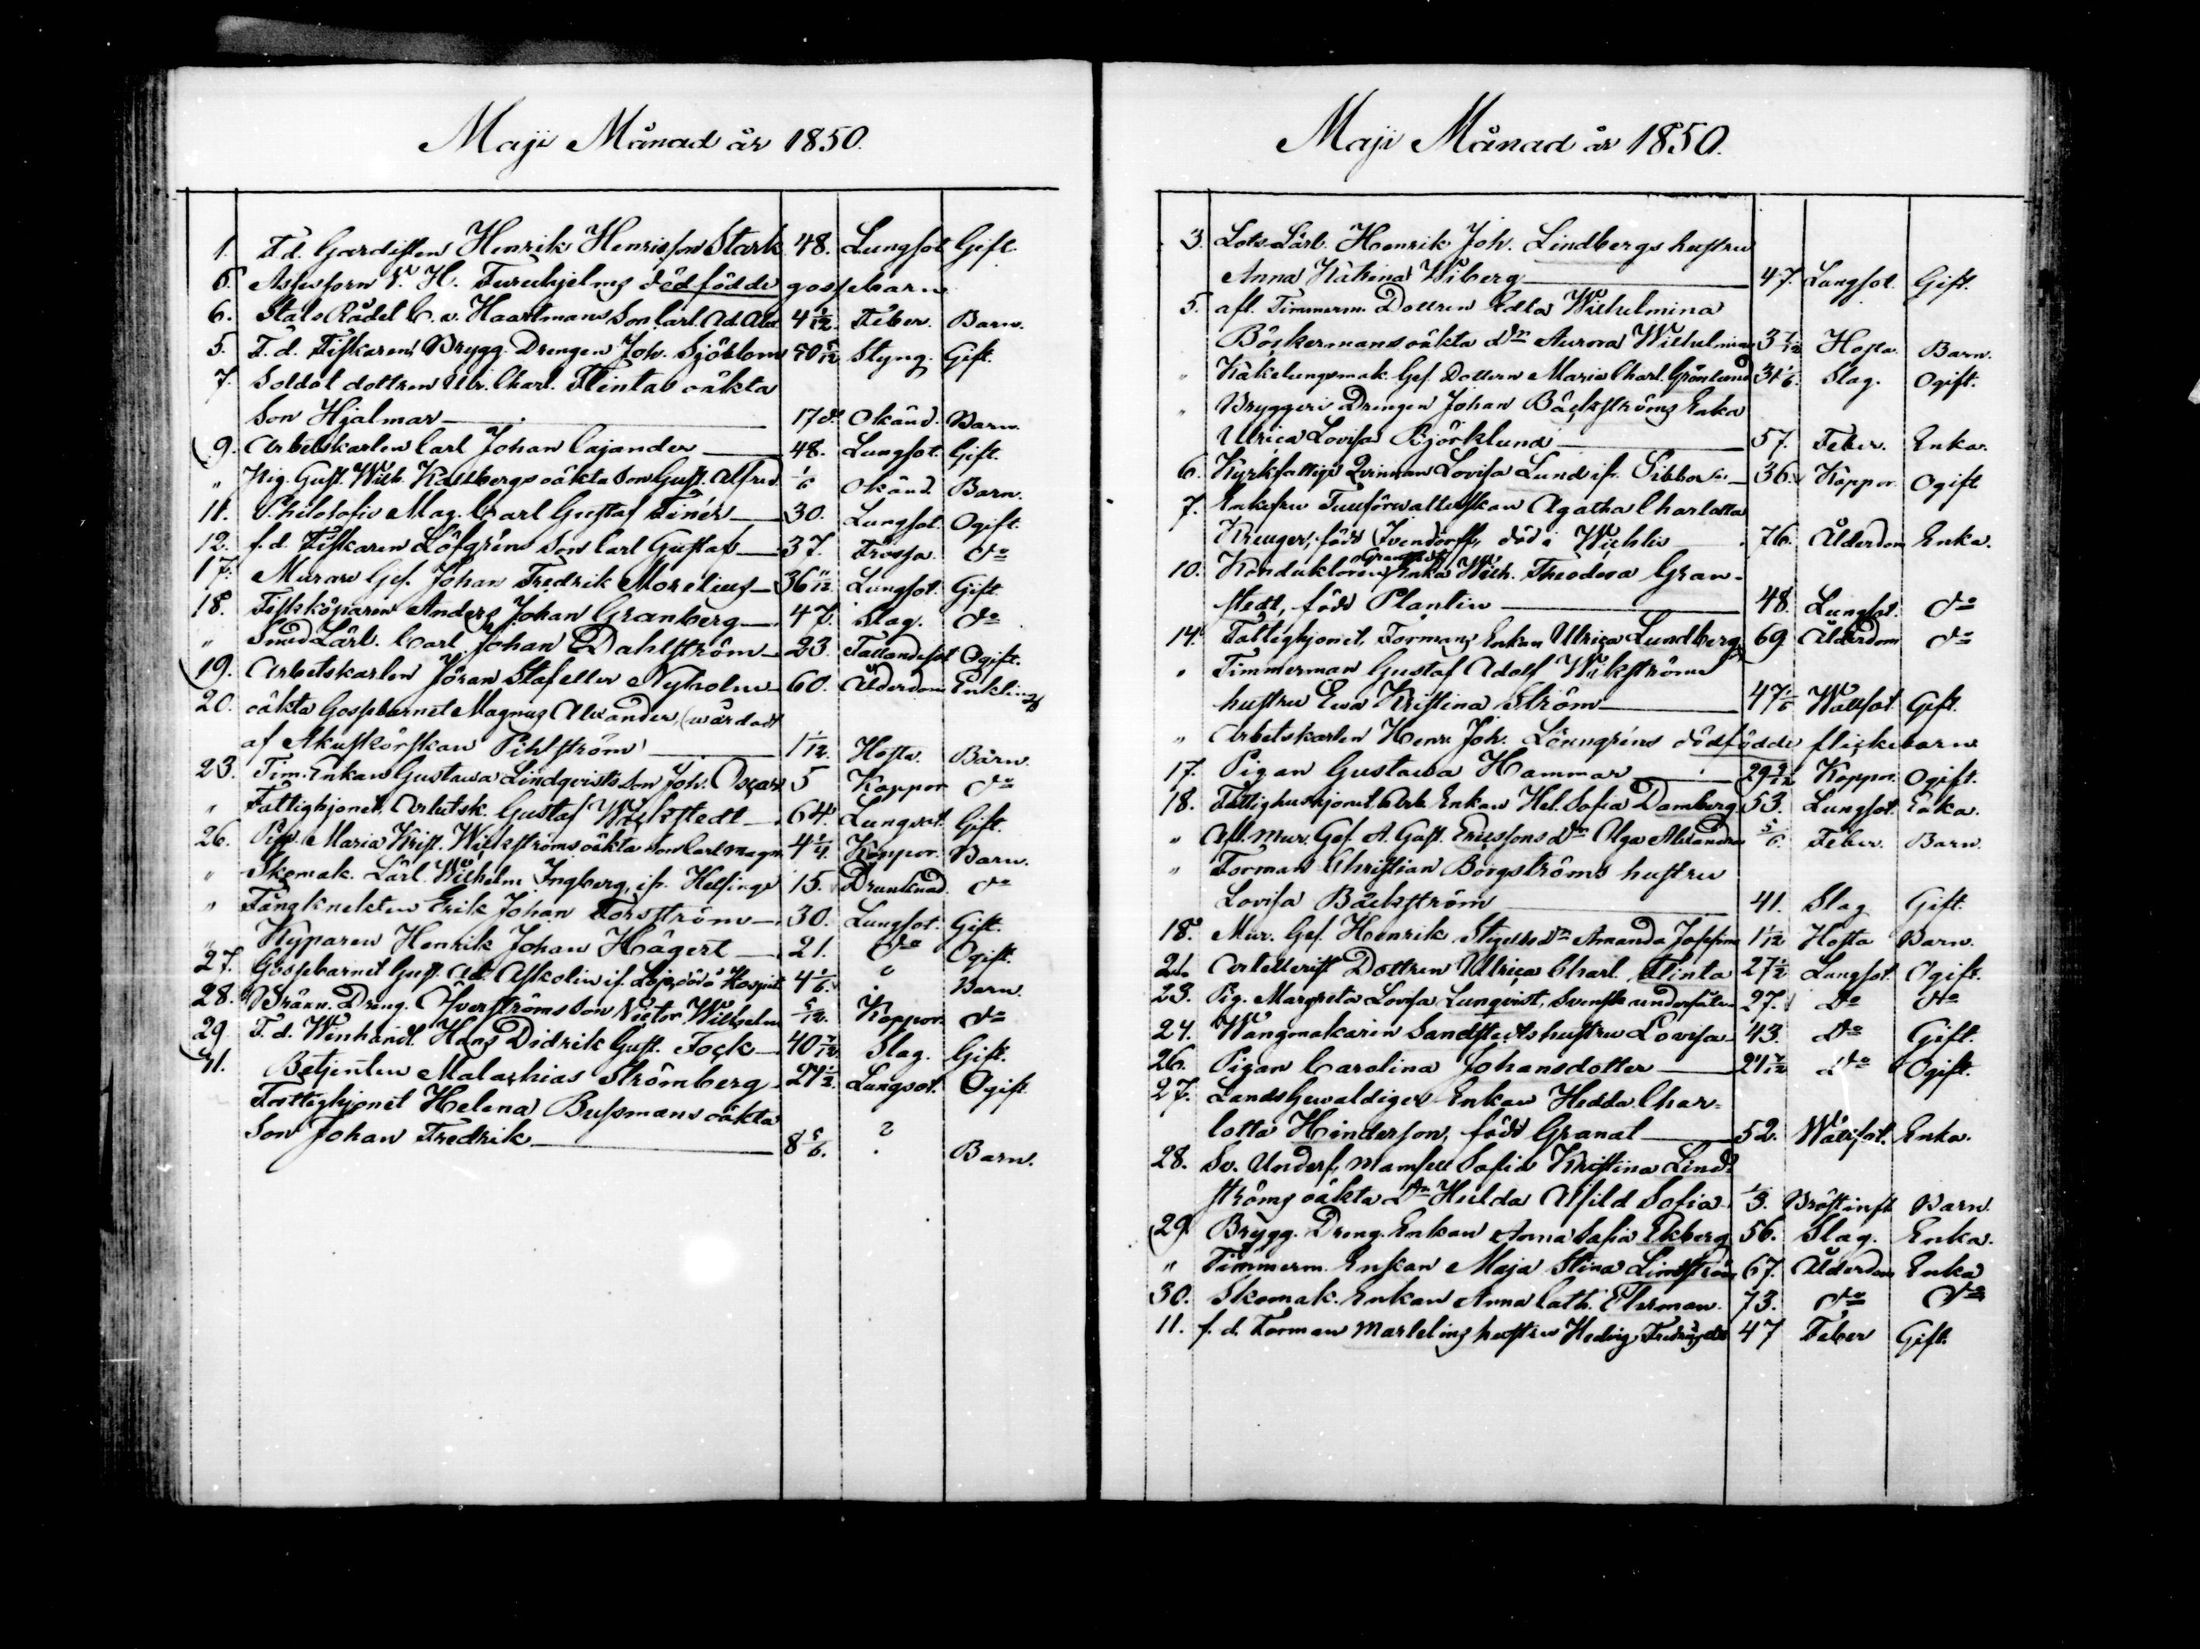 Maji Månad år 1850.
1. F.d. Gardisten Henrik Henriksson Stark 48. Lungsot Gift.
6. Assessorn V. H. Furuhjelms dödfödde gossebarn
6. Stats Rådet C. v. Haartmans Son Carl Ad. Alex. 4 1/12 Feber. Barn.
5. F.d. Fiskaren Brygg. Drengen Joh. Sjöblom 50 5/12 Styng. Gift.
7. Soldat dottren Ulr. Charl. Flintas oäkta
Son Hjalmar 17 d. Okänd. Barn.
9. Arbetskarlen Carl Johan Cajander 48. Lungsot. Gift.
" Pig. Gust. Wilh. Kallbergs oäkta Son Gust. Alfred 1/6 Okänd. Barn.
11. Philosofie Mag. Carl Gustaf Tinér 30. Lungsot. Ogift.
12. f.d. Fiskaren Löfgréns Son Carl Gustaf 37. Frossa. do
17. Murare Ges. Johan Fredrik Morelius 36 11/12 Lungsot. Gift.
18. Fiskköparen Anders Johan Granberg 47. Slag. do
" Smed Lärl. Carl Johan Dahlström 23. Fallandesot Ogift.
19. Arbetskarlen Jöran Staf eller Nyholm 60. Ålderdom Enkling
20. oäkta Gossebarnet Magnus Alexander, (wårdadt
af Akuskörskan Pihlström) 1 1/12. Hosta. Barn.
23. Tim. Enkans Gustawa Lindqvists Son Joh. Oscar 5 Koppor do
" Fattighjonet, Arbetsk. Gustaf Wickstedt 64. Lungsot. Gift.
26. Pig. Maria Krist. Wikströms oäkta Son Carl Magn. 4 1/4 Koppor. Barn.
" Skomak. Lärl. Wilhelm Ingberg, ifr. Helsinge 15. Drunknad. do
" Fångknekten Erik Johan Forsström 30. Lungsot. Gift.
" Kyparen Henrik Johan Hägert 21. do Ogift.
27. Gossebarnet Gust. Ad. Askolin if. Lojo, död å Hospit. 4 1/6. ? Barn.
28. Bränn. Dreng. Öfverströms Son Victor Wilhelm 5/12. Koppor do
29. F.d. Winhandl. Hans Didrik Gust. Fock 40 7/12 Slag. Gift.
11. Betjenten Malachias Strömberg 24 1/2. Lungsot. Ogift
Fattighjonet Helena Bussmans oäkta
Son Johan Fredrik 8 5/6. ? Barn.
Maji Månad år 1850.
3. Lots Lärl. Henrik Joh. Lindbergs hustru
Anna Katrina Wiberg 47. Lungsot. Gift.
5. afl. Timmerm. Dottren Edla Wilhelmina
Böckermans oäkta dr Aurora Wilhelmina 3 7/12 Hosta. Barn.
" Kakelungsmak. Ges. Dottern Maria Charl. Grönlund 31 1/6. Slag. Ogift.
" Bryggeri Drengen Johan Bäckströms Enka
Ulrica Lovisa Björklund 57. Feber. Enka.
6. Kyrkfattige Qvinnan Lovisa Lund if. Sibbo 36. Koppor Ogift
7. Enkefru Tullförwalterskan Agatha Charlotta
Kreuger, född Ivendorff, död i Wichtis 76. Ålderdom Enka.
10. Konduktoren Granstedts Enka Wilh. Theodora Gran-
stedt, född Plantin 48. Lungsot. do
14. Fattighjonet, Formans Enkan Ulrica Lundberg 69 Ålderdom do
" Timmerman Gustaf Adolf Wikströms
hustru Ewa Kristina Ström 47 1/6 Wattsot. Gift.
" Arbetskarlen Henr. Joh. Lönngréns dödfödde flickebarn
17. Pigan Gustawa Hammar 29 9/12 Koppor. Ogift.
18. Fattighushjonet, Arb. Enkan Hel. Sofia Damberg 53. Lungsot. Enka.
" Afl. Mur. Ges. A. Gust. Ericssons dr Olga Alexandra 5/6. Feber. Barn.
" Forman Christian Borgströms hustru
Lovisa Bäckström 41. Slag Gift.
18. Mur. Ges. Henrik Stigells dr Amanda Josefina 1 1/12 Hosta Barn.
21. Artellerist Dottren Ulrica Charl. Flinta 27 1/2 Lungsot. Ogift.
23. Pig. Margreta Lovisa Lunqvist, Svensk undersåte 27. do do
24. Wangmakarin Sandstedts hustru Lovisa 43. do Gift.
26. Pigan Carolina Johansdotter 24 7/12 do Ogift.
27. Lands Gewaldigers Enkan Hedda Char-
lotta Hinderson, född Granat 52. Wattsot. Enka.
28. Sv. Unders. Mamsell Sofia Kristina Lind-
ströms oäkta dr Hulda Alfild Sofia 1/3. Bröstinfl. Barn.
29. Brygg. Dreng. Enkan Anna Sofia Ekberg 56. Slag. Enka.
" Timmerm. Enkan Maja Stina Lindström 67. Ålderdom Enka
30. Skomak. Enkan Anna Cath. Ekman 73. do do
11. f.d. Forman Martelins hustru Hedvig 47 Feber Gift.